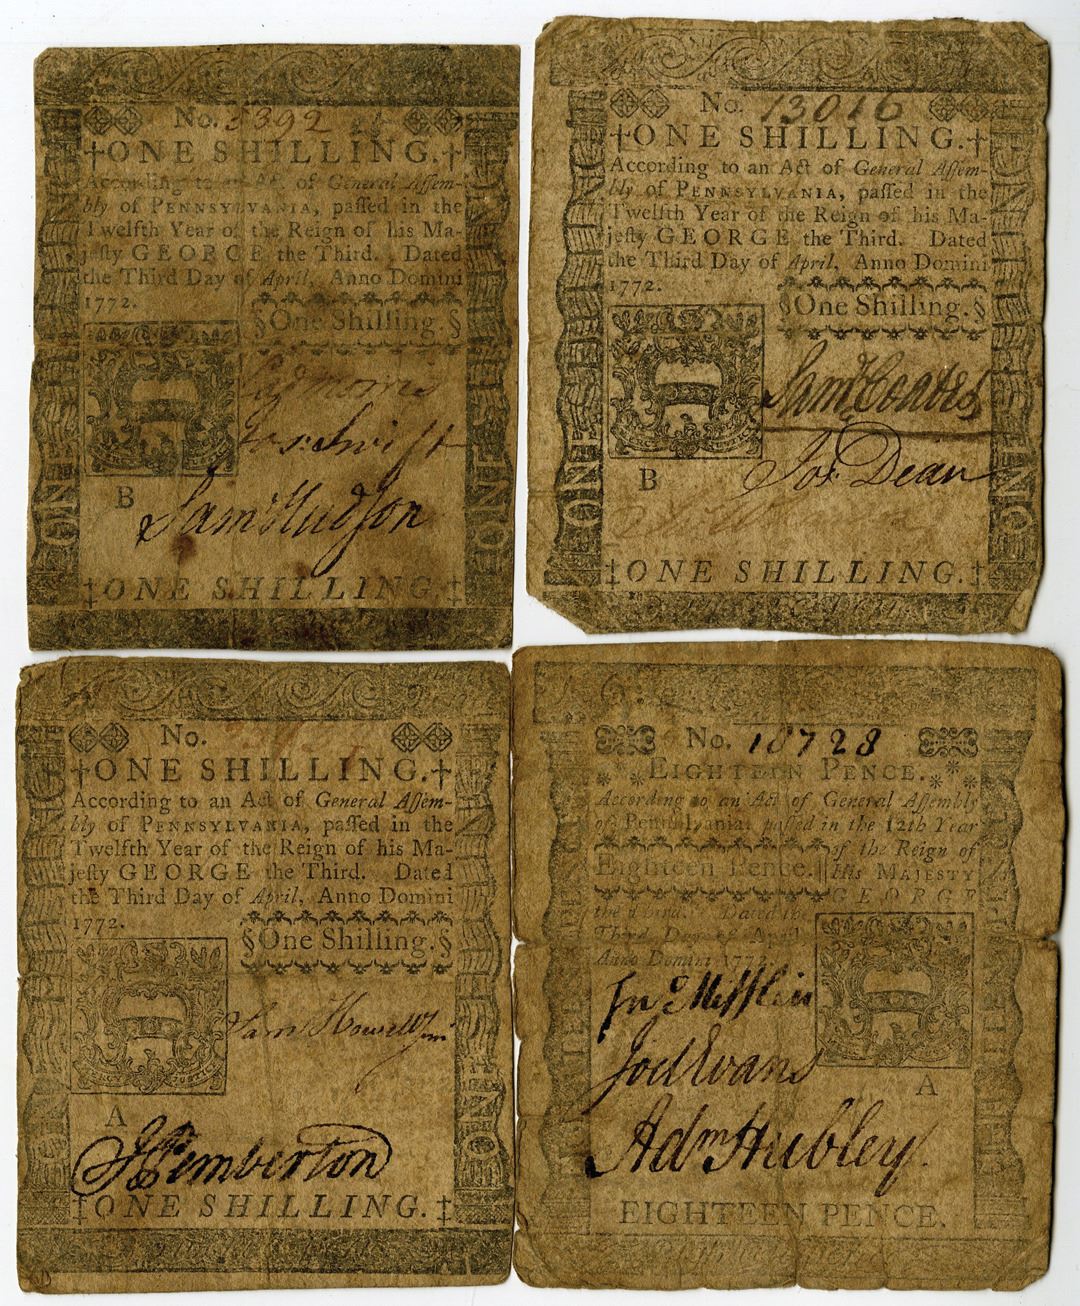 No. 5392
‡ONE SHILLING.‡
According to an Act of General Assem-
bly of PENNSYLVANIA, passed in the
Twelfth Year of the Reign of his Ma-
jesty GEORGE the Third. Dated
the Third Day of April, Anno Domini
1772.
§One Shilling.§
Morris
Jos. Swift
B
Saml Hudson
‡ONE SHILLING.‡
ONE
ONE
No. 13016
‡ONE SHILLING.‡
According to an Act of General Assem-
bly of PENNSYLVANIA, passed in the
Twelfth Year of the Reign of his Ma-
jesty GEORGE the Third. Dated
the Third Day of April, Anno Domini
1772.
§One Shilling.§
Saml Coates
Jos. Dean
B
‡ONE SHILLING.‡
ONE
ONE
No.
‡ONE SHILLING.‡
According to an Act of General Assem-
bly of PENNSYLVANIA, passed in the
Twelfth Year of the Reign of his Ma-
jesty GEORGE the Third. Dated
the Third Day of April, Anno Domini
1772.
§One Shilling.§
Saml Howell Jun
A
J Pemberton
‡ONE SHILLING.‡
ONE
ONE
No. 18728
EIGHTEEN PENCE.
According to an Act of General Assembly
of Pennsylvania, passed in the 12th Year
of the Reign of
Eighteen Pence. His MAJESTY
GEORGE
the Third. Dated the
Third Day of April
Anno Domini 1772.
Jno Mifflin
Joel Evans
A
Adm Hubley.
EIGHTEEN PENCE.